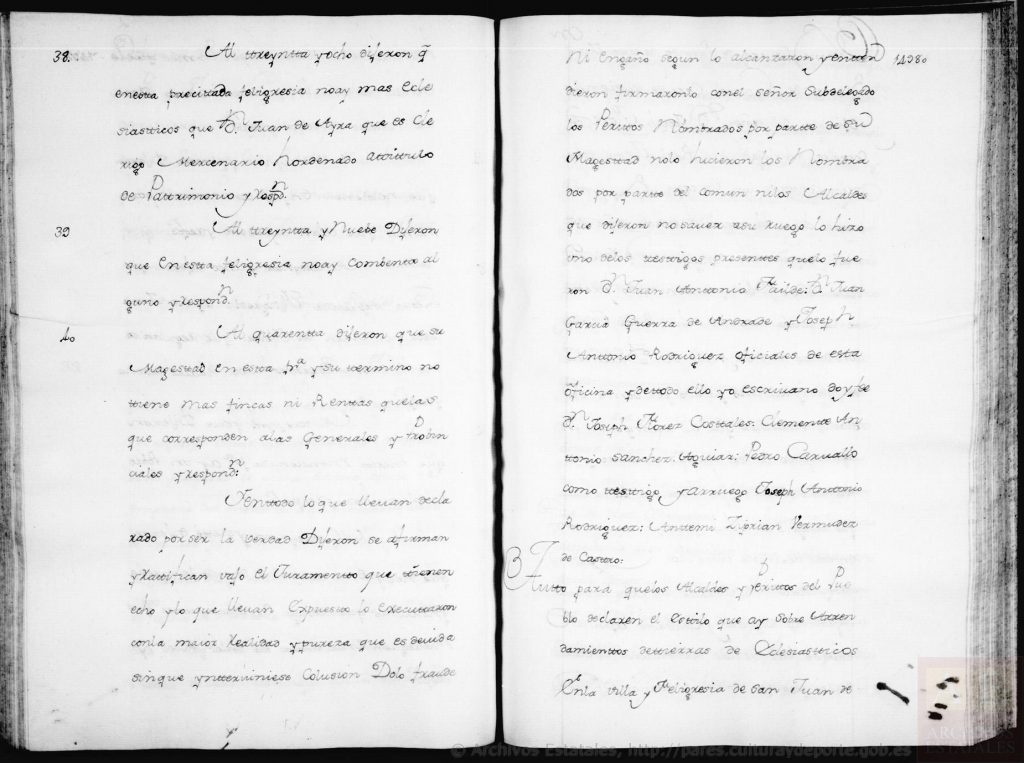 38. Al ttreyntta y ocho dijeron q̃
en esta precitada feligresia no ay mas Ecle
siastticos que Dn. Juan de Ayra que es Cle
rigo Mercenario hordenado attittulo
de Pattrimonio y Respd.n
39 Al ttreyntta y Nuebe Dijeron
que En estta feligresia no ay Combentto al
guno y Respond.n
40 Al quarentta dijeron que su
Magesttad en esta fr.a y su ttermino no
ttiene mas fincas ni Renttas que las
que corresponden alas Generales y Probin
ciales y Respond.n
Yenttodo lo que lleuan decla
rado por ser la verdad Dijeron se afirman
y Rattifican vajo el Juramentto que ttienen
echo y lo que lleuan Expuestto lo executtaron
conla maior Realidad y pureza que es deuida
sin que yntteruiniese Colusion Dolo fraude
14980
Ni engaño segun lo alcanzaron y entten
dieron firmaronlo con el señor Subdelegado
los Peritos Nombrados por partte de su
Magesttad nolo hicieron los Nombra
dos por partte del comun nilos Alcaldes
que dijeron no sauer asu ruego lo hizo
uno delos testtigos presenttes quelo fue
ron Dn. Juan Anttonio Failde: Dn. Juan
Garcia Guerra de Andrade y Joseph
Anttonio Rodriguez oficiales de esta
oficina y dettodo ello yo escriuano doy fe
Dn. Joseph Florez Costtales: Clemente An
ttonio Sanchez: Aguiar: Pedro Caruallo
como testtigo, y arruego Joseph Anttonio
Rodriguez: Anttemi Ziprian Vermudez
de Casttro:
Autto para quelos Alcaldes y Peritos del Pue
blo declaren el Esttilo que ay sobre Arren
damienttos dettierras de Eclesiastticos
Enla villa y Feligresia de San Juan de
© Archivos Estatales, http://pares.culturaydeporte.gob.es
ARCHIVOS
ESTATALES